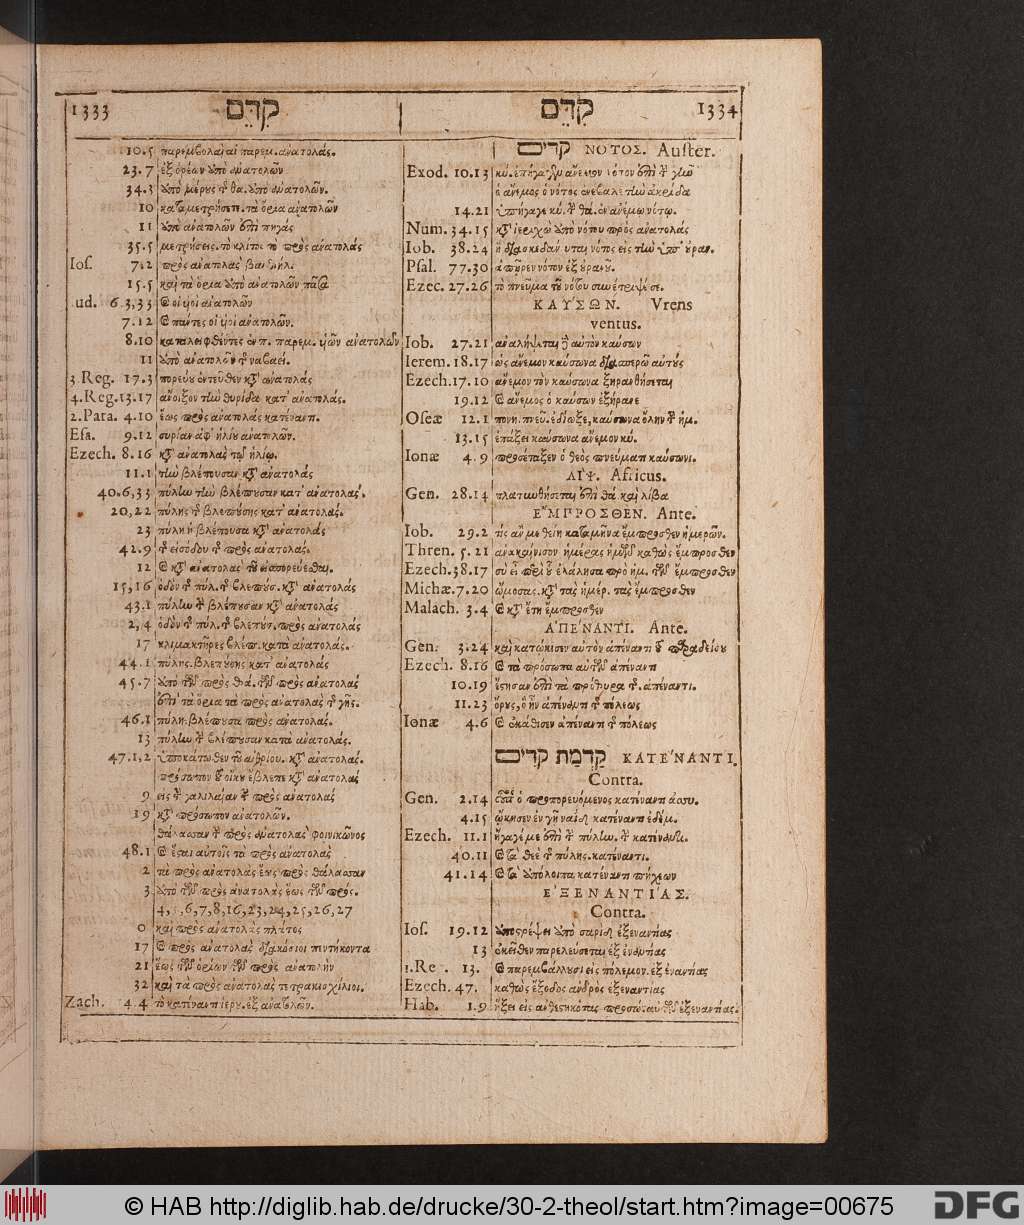 1333 קדם
10.5 παρεμβολαὶ αἱ παρεμ. ἀνατολάς.
23.7 ἐξ ὀρέων ὑπὸ ἀνατολῶν
34.3 ὑπὸ μέρους τῆς θα. ὑπὸ ἀνατολῶν.
10 καταμετρήσετε. τὰ ὅρια ἀνατολῶν
11 ὑπὸ ἀνατολῶν ἐπὶ πηγάς
35.5 μετρήσεις. τὸ κλίτος τὸ πρὸς ἀνατολάς
Ios. 7.2 πρὸς ἀνατολὰς
15.5 καὶ τὰ ὅρια ὑπὸ ἀνατολῶν πᾶσα
ud. 6 3,33 καὶ οἱ υἱοὶ ἀνατολῶν
7.12 καὶ πάντες οἱ υἱοὶ ἀνατολῶν.
8.10 καταλειφθέντες ἀνατολῶν
11 ὑπὸ ἀνατολῶν τῆς ναβαέ.
3 Reg. 17.3 πορεύου ἐντεῦθεν κατ' ἀνατολάς
4. Reg. 13.17 ἄνοιξον τὴν θυρίδα κατ' ἀνατολάς.
2. Para. 4.10 ἕως πρὸς ἀνατολάς κατέναντι.
Esa. 9.12 συρίαν ἀφ' ἡλίου ἀνατολῶν.
Ezech. 8.16 κατ' ἀνατολὰς τῷ ἡλίῳ.
11.1 τὴν βλέπουσαν κατ' ἀνατολάς
40.6,33 πύλην τὴν βλέπουσαν κατ' ἀνατολάς.
20,22 πύλης τῆς βλεπούσης κατ' ἀνατολάς.
23 πύλη ἡ βλέπουσα κατ' ἀνατολάς
42.9 τῆς εἰσόδου τῆς πρὸς ἀνατολάς.
12 καὶ κατ' ἀνατολὰς τοῦ εἰσπορεύεσθαι.
15,16 ὁδὸν τῆς πύλ. τῆς βλεπούσ. κατ' ἀνατολάς
43.1 πύλην τῆς βλέπουσαν κατ' ἀνατολάς
2,4 ὁδὸν τῆς πύλ. τῆς βλεπουσ. πρὸς ἀνατολάς
17 κλιμακτῆρες βλέπ. κατὰ ἀνατολάς.
44.1 πύλης. βλεπούσης κατ' ἀνατολάς
45.7 ὑπὸ τῶν πρὸς θά. τῶν πρὸς ἀνατολάς
ἐπὶ τὰ ὅρια τὰ πρὸς ἀνατολὰς τῆς γῆς.
46.1 πύλη. βλέπουσα πρὸς ἀνατολάς.
13 πύλην τῆς βλέπουσαν κατὰ ἀνατολάς.
47.1,2 ὑποκάτωθεν τοῦ αἰθρίου. κατ' ἀνατολάς.
πρόσωπον τοῦ οἴκου ἔβλεπε κατ' ἀνατολάς
9 εἰς τῆς γαλιλαίαν τῆς πρὸς ἀνατολάς
19 κατ' πρόσωπον ἀνατολῶν.
θάλασσαν τῆς πρὸς ἀνατολὰς φοινικῶνος
48.1 καὶ ἔσται αὐτοῖς τὰ πρὸς ἀνατολάς
2 τὰ πρὸς ἀνατολὰς ἕως πρὸς θάλασσαν
3 ὑπὸ τῶν πρὸς ἀνατολὰς ἕως τῶν πρός.
4, 5,6,7,8,16,23,24,25,26,27
0 καὶ πρὸς ἀνατολὰς πλάτος
17 καὶ πρὸς ἀνατολὰς διακόσιοι πεντήκοντα
21 ἕως τῶν ὁρίων τῶν πρὸς ἀνατολὴν
32 καὶ τὰ πρὸς ἀνατολὰς τετρακισχίλιοι.
Zach. 4.4 τὸ κατέναντι ἱερου. ἐξ ἀνατολῶν.
קדם 1334
קדים ΝΟΤΟΣ. Auster.
Exod. 10.13 κύ. ἐπήγαγεν ἄνεμον νότον ἐπὶ τῆς γῆν
ὁ ἄνεμος ὁ νότος ἀνέβαλε τὴν ἀκρίδα
14.21 ὑπήγαγε κύ. τῆς θά. ἐν ἀνέμῳ νότῳ.
Num. 34.15 κατ' ἱεριχὼ ὑπὸ νότου πρὸς ἀνατολάς
Iob. 38.24 ἢ διασκεδάννυται νότος εἰς τὴν ὑπ' οὐραν.
Psal. 77.30 ἀπῆρεν νότον ἐξ οὐρανοῦ.
Ezec. 27.26 τὸ πνεῦμα τοῦ νότου συνέτριψέ σε.
ΚΑΥΣΩΝ. Vrens
ventus.
Iob. 27.21 ἀναλήψεται δὲ αὐτὸν καύσων
Ierem. 18.17 ὡς ἄνεμον καύσωνα διασπερῶ αὐτούς
Ezech. 17.10 ἄνεμον τὸν καύσωνα ξηρανθήσεται
19.12 καὶ ἄνεμος ὁ καύσων ἐξήρανε
Oseæ 12.1 πονη. πνεῦ. ἐδίωξε, καύσωνα ὅλην τῆς ἡμ.
13.15 ἐπάξει καύσωνα ἄνεμον κύ.
Ionæ 4.9 προσέταξεν ὁ θεὸς πνεύματι καύσωνι.
ΛΙΨ. Africus.
Gen. 28.14 πλατυνθήσεται ἐπὶ θά. καὶ λίβα
ἜΜΠΡΟΣΘΕΝ. Ante.
Iob. 29.2 τίς ἄν με θείη κατὰ μῆνα ἔμπροσθεν ἡμερῶν.
Thren. 5.21 ἀνακαίνισον ἡμέρας ἡμῶν καθὼς ἔμπροσθεν
Ezech. 38.17 σὺ εἶ περὶ οὗ ἐλάλησα πρὸ ἡμ. τῶν ἔμπροσθεν
Michæ. 7.20 ὤμοσας. κατ' τὰς ἡμέρ. τὰς ἔμπροσθεν
Malach. 3.4 καὶ κατ' ἔτη ἔμπροσθεν
ἈΠΕΝΑΝΤΙ. Ante.
Gen. 3.24 καὶ κατῴκισεν αὐτὸν ἀπέναντι τοῦ παραδείσου
Ezech. 8.16 καὶ τὰ πρόσωπα αὐτῶν ἀπέναντι
10.19 ἔστησαν ἐπὶ τὰ πρόθυρα τῆς. ἀπέναντι.
11.23 ὄρους, ὃ ἦν ἀπέναντι τῆς πόλεως
Ionæ 4.6 καὶ ἐκάθισεν ἀπέναντι τῆς πόλεως
קדמת קדים ΚΑΤΕΝΑΝΤΙ.
Contra.
Gen. 2.14 οὗτος ὁ προπορευόμενος κατέναντι ἀσσυ.
4.15 ᾤκησεν ἐν γῇ ναὶδ κατέναντι ἐδέμ.
Ezech. 11.1 ἤγαγέ με ἐπὶ τῆς πύλην. τῆς κατέναντι.
40.11 καὶ τὰ θεὲ τῆς πύλης. κατέναντι.
41.14 καὶ τὰ ὑπόλοιπα κατέναντι πήχεων
ἘΞΕΝΑΝΤΙΑΣ.
Contra.
Ios. 19.12 ὑποστρέψει ὑπὸ σαριδ ἐξεναντίας
13 ἐκεῖθεν παρελεύσεται ἐξ ἐναντίας
1. Re . 13. καὶ παρεμβάλλουσι εἰς πόλεμον. ἐξ ἐναντίας
Ezech. 47. καθὼς ἔξοδος ἀνδρὸς ἐξεναντίας
Hab. 1.9 ἥξει εἰς ἀνθεστηκότας ἐξεναντίας.
© HAB http://diglib.hab.de/drucke/30-2-theol/start.htm?image=00675 DFG